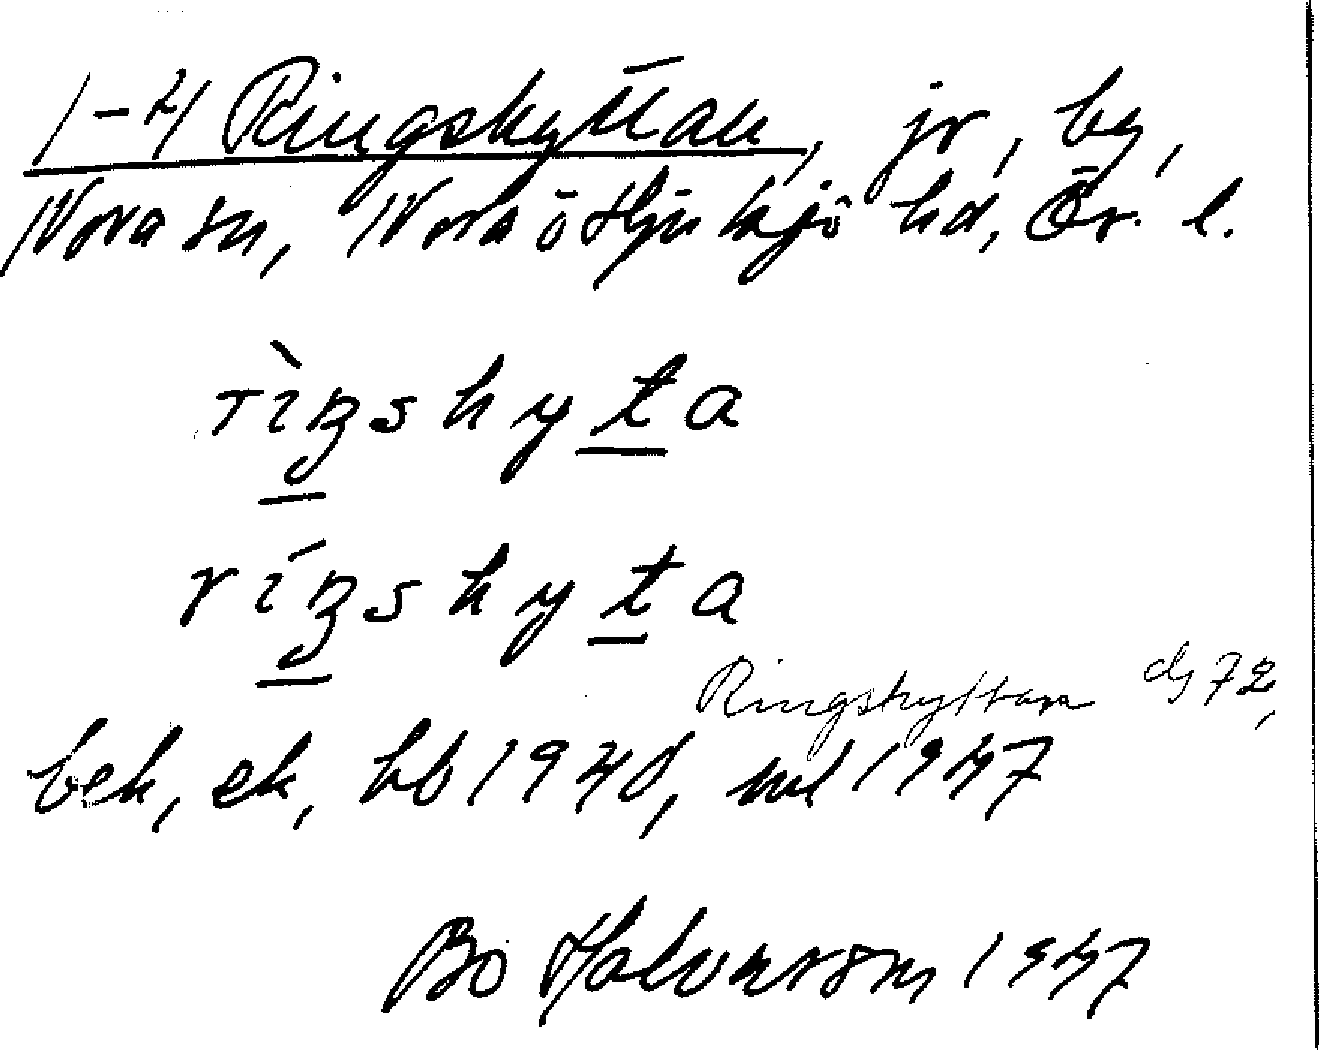 1-4 Ringshyttan, jr, by,
Nora sn, Nora o Hjulsjö hd, Ör. l.
rìŋshyta
ríŋshyta
Ringshyttan
bek, ek, hb 1940, ml 1947
Bo Halvarson 1947